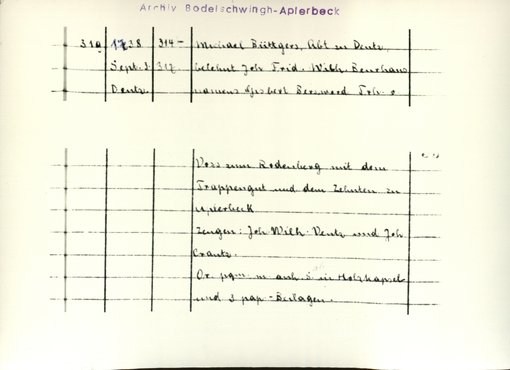 Archiv Bodelschwingh-Aplerbeck
319 1738 314-
Michael Büttgers, Abt in Deutz,
Sept. 2. 317. belehnt Joh. Frid. Wilh.
Deutz. namens Frh. v
Voss zum Rodenberg mit dem
Trappengut und dem Zehnten zu
Aplerbeck
Zeugen: Joh Wilh. Deutz und Joh
Crantz.
Or. pgm. m. anh. S in Holzkapsel
und 3 pap-Beilagen.